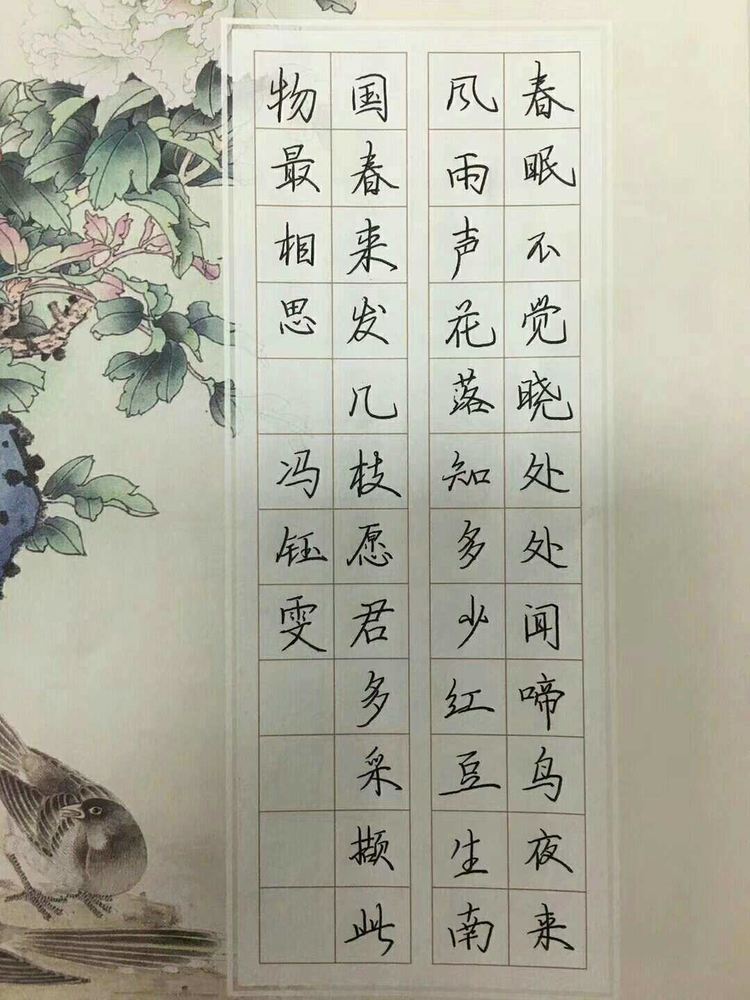 春眠不觉晓处处闻啼鸟夜来
风雨声花落知多少红豆生南
国春来发几枝愿君多采撷此
物最相思 冯钰雯